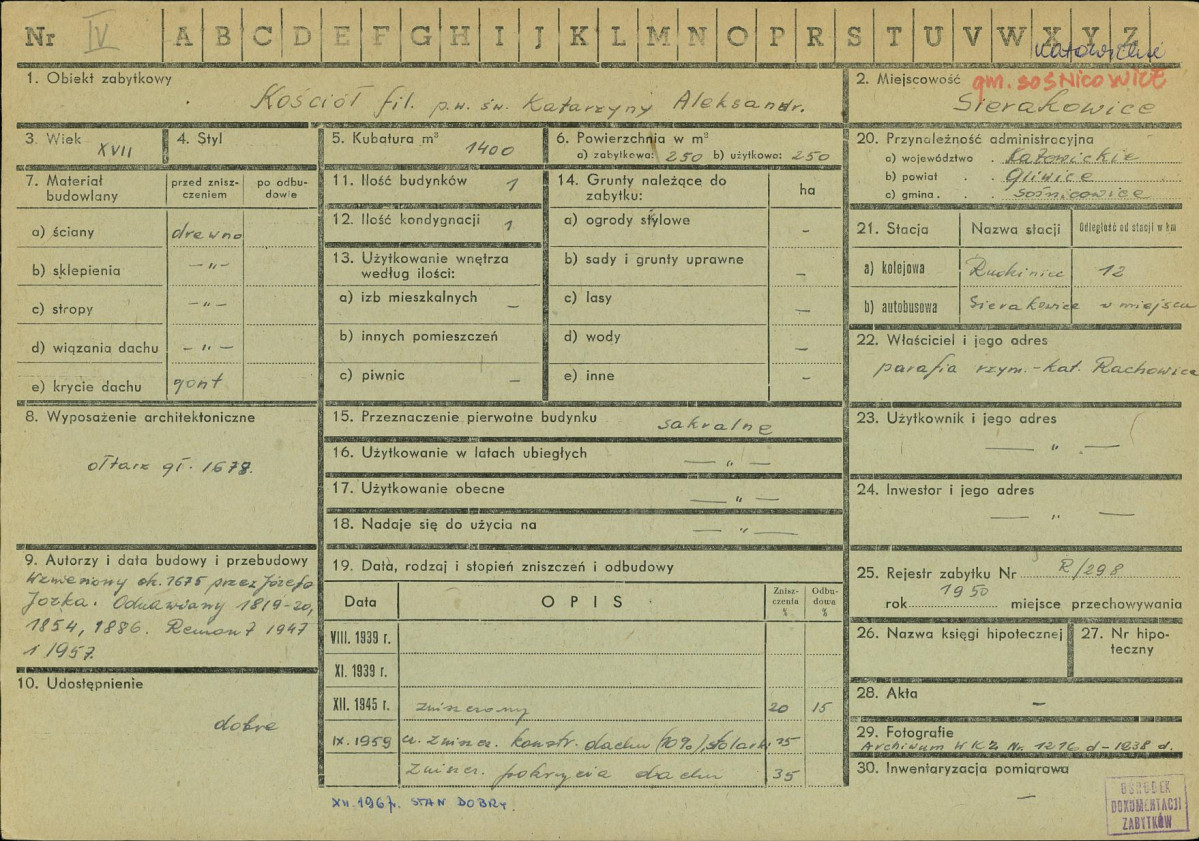 Nr IV A B C D E F G H I J K L M N O P R S T U V W X Y Z
Katowickie
1. Obiekt zabytkowy
Kościół fil. p.w. św. Katarzyny Aleksandr.
2. Miejscowość gm. SOŚNICOWICE
Sierakowice
3. Wiek XVII
4. Styl
5. Kubatura m³ 1400
6. Powierzchnia w m²
a) zabytkowa: 250 b) użytkowa: 250
20. Przynależność administracyjna
a) województwo . Katowickie
b) powiat . . Gliwice
c) gmina . . Sośnicowice
7. Materiał budowlany
przed zniszczeniem
po odbudowie
a) ściany drewno
b) sklepienia — „ —
c) stropy — „ —
d) wiązania dachu — „ —
e) krycie dachu gont
11. Ilość budynków 1
12. Ilość kondygnacji 1
13. Użytkowanie wnętrza
według ilości:
a) izb mieszkalnych —
b) innych pomieszczeń
c) piwnic —
14. Grunty należące do
zabytku:
ha
a) ogrody stylowe —
b) sady i grunty uprawne —
c) lasy —
d) wody —
e) inne —
21. Stacja Nazwa stacji Odległość od stacji w km
a) kolejowa Rudziniec 12
b) autobusowa Sierakowice w miejscu
22. Właściciel i jego adres
parafia rzym.-kat. Rachowice
8. Wyposażenie architektoniczne
ołtarz gł. 1678.
15. Przeznaczenie pierwotne budynku sakralne
16. Użytkowanie w latach ubiegłych — „ —
17. Użytkowanie obecne — „ —
18. Nadaje się do użycia na — „ —
23. Użytkownik i jego adres
— „ —
24. Inwestor i jego adres
— „ —
9. Autorzy i data budowy i przebudowy
Wzniesiony ok. 1675 przez Józefa
Jozka. Odnawiany 1819-20,
1854, 1886. Remont 1947
i 1957.
10. Udostępnienie
dobre
19. Data, rodzaj i stopień zniszczeń i odbudowy
Data OPIS Zniszczenia % Odbudowa %
VIII. 1939 r.
XI. 1939 r.
XII. 1945 r. zniszczony 20 15
IX. 1959 cz. zniszcz. konstr. dachu (10%), stolarki 25
zniszcz. pokrycia dachu 35
XII. 1967r. STAN DOBRY.
25. Rejestr zabytku Nr R/298
rok 1950 miejsce przechowywania
26. Nazwa księgi hipotecznej
27. Nr hipoteczny
28. Akta —
29. Fotografie
Archiwum WKZ Nr. 1216 d-1238 d.
30. Inwentaryzacja pomiarowa
—
OŚRODEK
DOKUMENTACJI
ZABYTKÓW